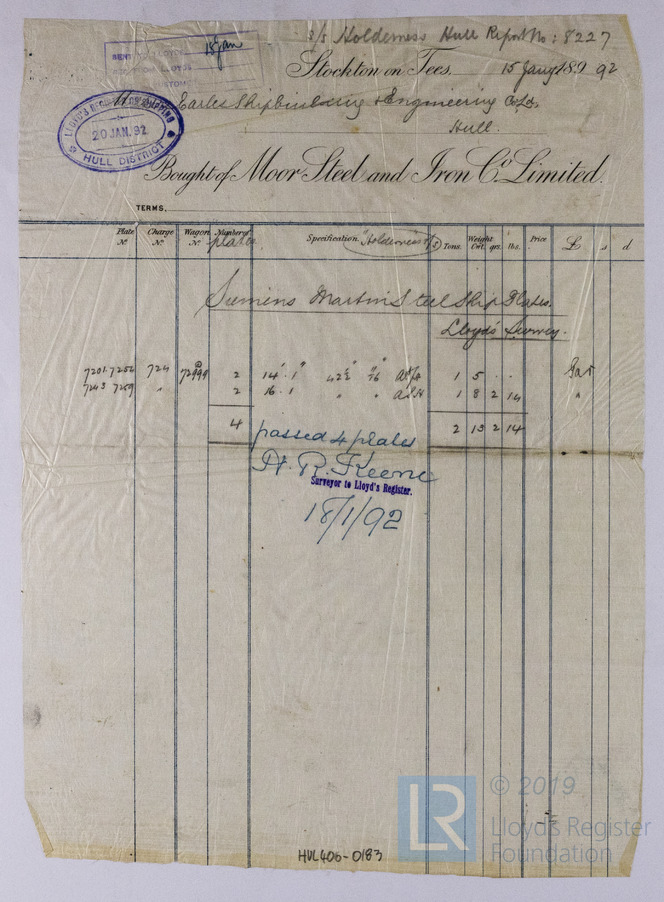 s/s Holderness Hull Report No: 8227
SENT TO LLOYDS 18 Jan
LLOYDS
CUSTOMER
Stockton on Tees, 15 Jany 189 92
Earles Shipbuilding & Engineering Co Ld
Hull.
LLOYD'S REGISTER OF SHIPPING
20 JAN. 92
HULL DISTRICT
Bought of Moor Steel and Iron Co. Limited.
TERMS,
Plate No Charge No Wagon No Number of plates Specification "Holderness" (s) Tons. Weight Cwt. qrs. lbs. Price £ s d
Siemens Martin Steel Ship Plates.
Lloyd's Survey.
7201.7252 724 72999 2 14' 1" 42½" 2 1 5 . .
7243 7259 " 2 16. 1 " " 1 8 2 14
4 2 13 2 14
passed 4 plates
H. R. Keene
Surveyor to Lloyd's Register.
18/1/92
LR
© 2019
Lloyd's Register
Foundation
HUL406-0183